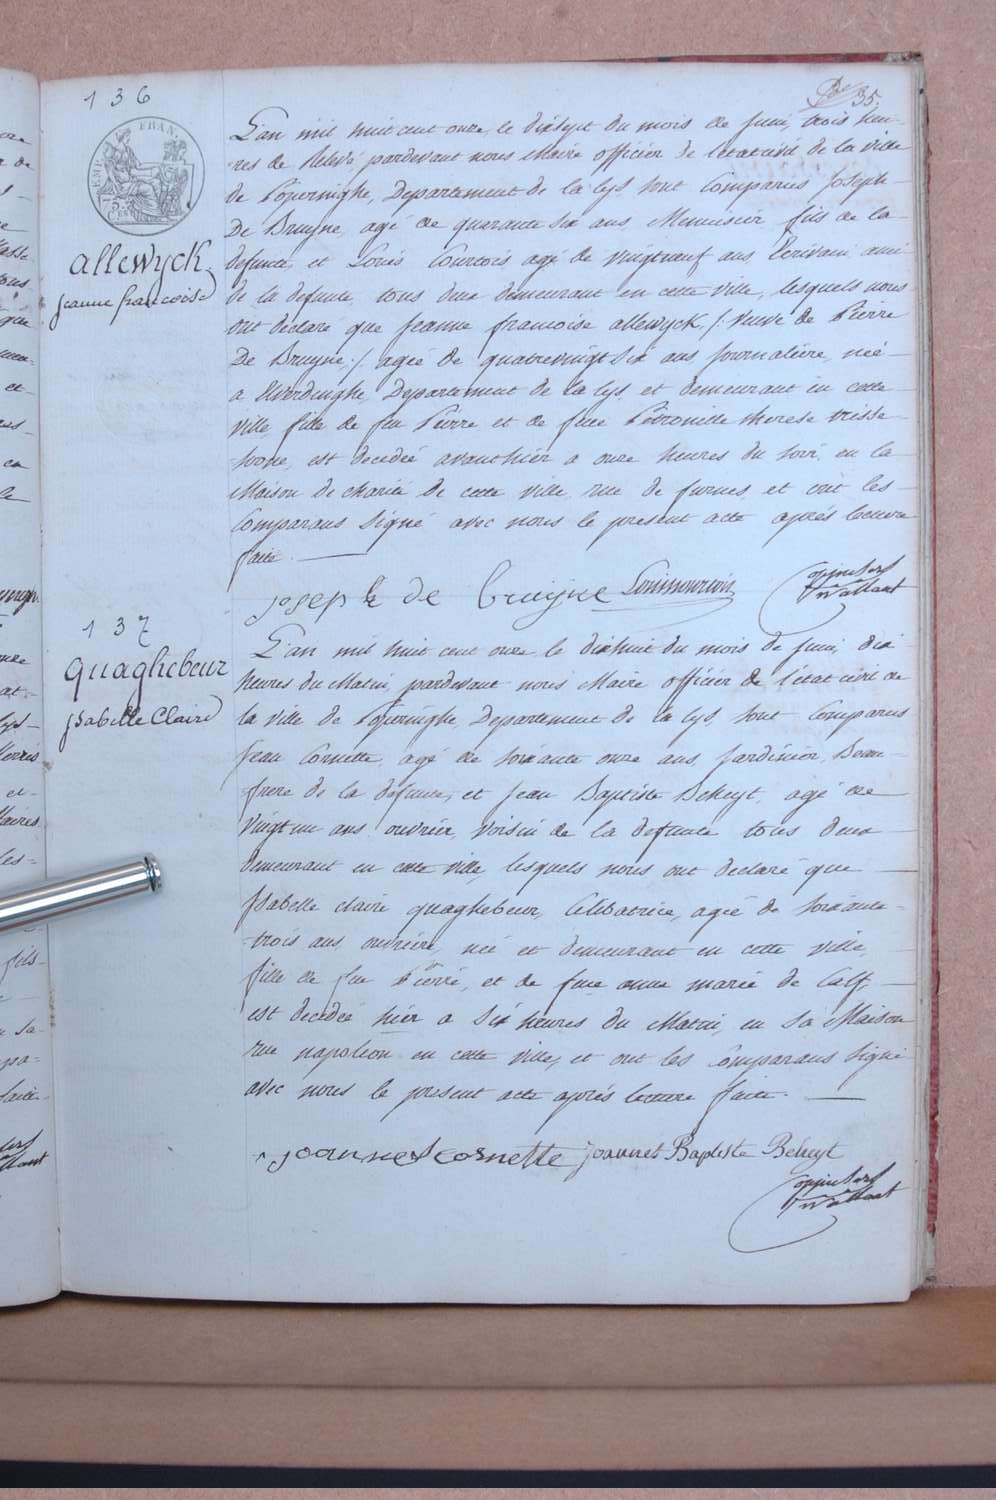 136
35.
EMP. FRAN.
75 Cen
allewyck
jeanne francoise
L'an mil huit cent onze, le dixsept du mois de juin, trois heu-
-res de Relevé, pardevant nous Maire officier de l'état civil de la ville
de Poperinghe, Departement de la Lys, sont Comparus Joseph
De Bruyne, agé de quarante six ans, Menuisier, fils de la
defunte, et Louis Courtois agé de vingtneuf ans Ecrivain, ami
de la defunte, tous deux demeurant en cette ville, lesquels nous
ont déclaré que Jeanne francoise allewyck /: veuve de Pierre
De Bruyne :/ agée de quatrevingt six ans journalière, née
a Elverdinghe, Departement de la Lys, et demeurant en cette
ville, fille de feu Pierre et de feue Petronille therese visse-
-hooge, est decedée avanthier a onze heures du soir, en la
Maison de charité de cette ville, rue de furnes, et ont les
Comparans signé avec nous le present acte après lecture
faite.
joseph de bruijne
137
quaghebeur
jsabelle Claire
L'an mil huit cent onze le dixhuit du mois de juin, dix
heures du Matin, pardevant nous Maire officier de l'état civil de
la ville de Poperinghe, Departement de la Lys, sont Comparus
Jean Cornette, agé de soixante onze ans, Jardinier, Beau-
-frere de la defunte, et Jean Baptiste Beheyt, agé de
vingt un ans ouvrier, voisin de la defunte tous deux
demeurant en cette ville, lesquels nous ont declaré que
Jsabelle claire quaghebeur, Celibatrice, agée de soixante-
-trois ans, ouvrière, née et demeurant en cette ville,
fille de feu Pierre, et de feue anne marie de Calf,
est decedée hier a six heures du Matin, en sa Maison
rue napoleon en cette ville, et ont les Comparans signé
avec nous le present acte après lecture faite.
joannes cornette joannes Baptiste Beheyt